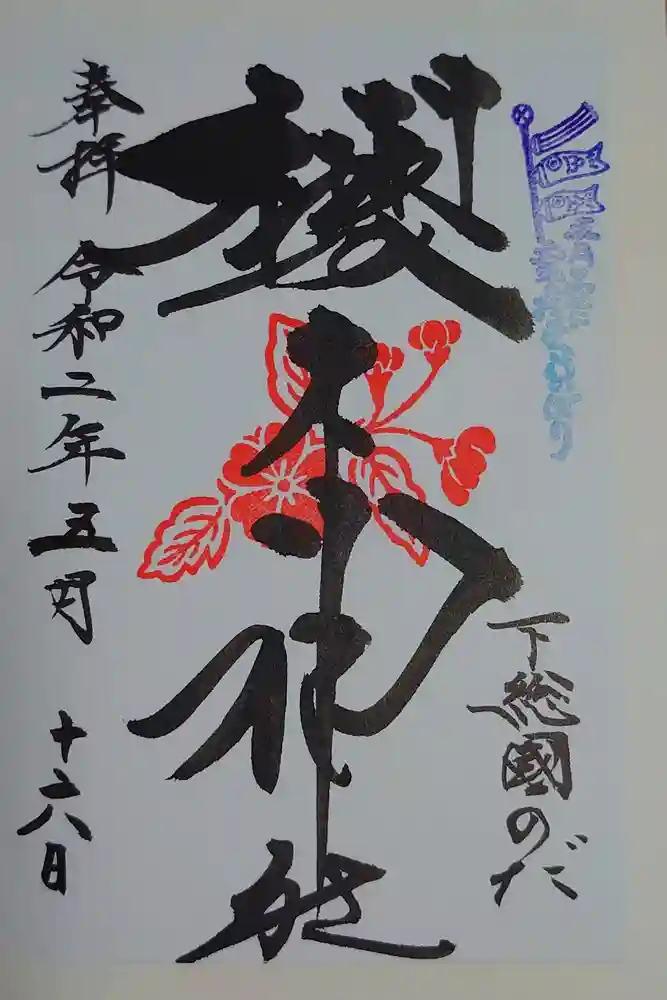 下総國のだ
櫻木神社
奉拝 令和二年五月 十六日